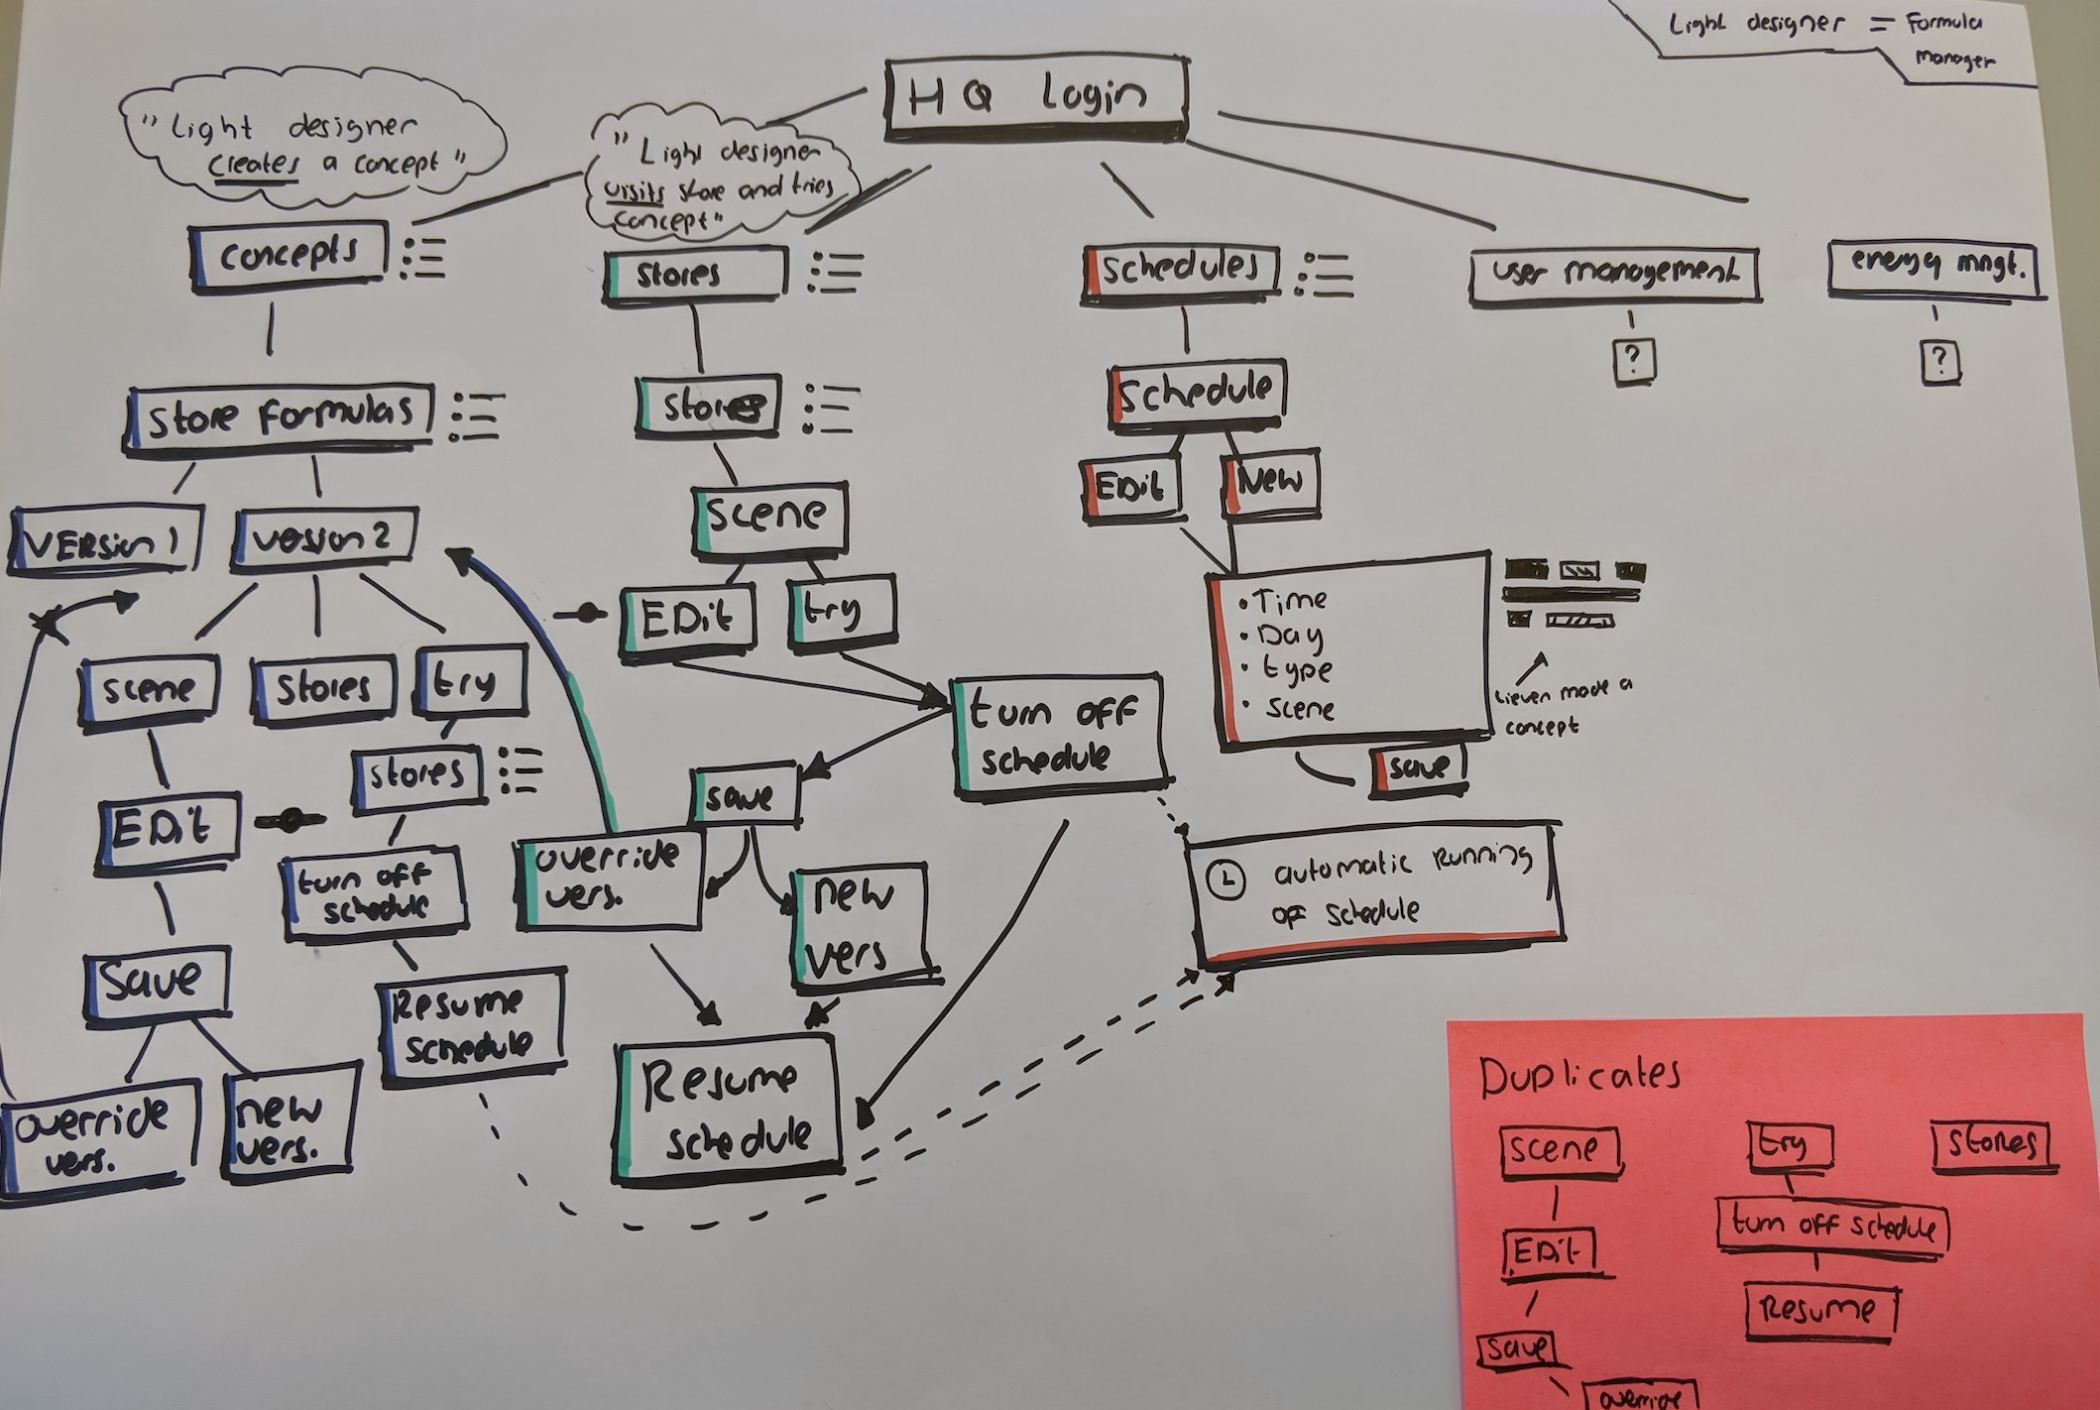 Light designer = Formula
manager
HQ Login
"Light designer
creates a concept"
"Light designer
visits store and tries
concept"
concepts
stores
schedules
user management
energy mngt.
?
?
store formulas
stores
schedule
EDit
New
VERsion 1
version 2
scene
EDit
try
• Time
• Day
• type
• scene
Lieven made a
concept
save
scene
stores
try
stores
EDit
turn off
schedule
save
override
vers.
new
vers
turn off
schedule
automatic running
off schedule
Save
Resume
schedule
override
vers.
new
vers.
Resume
schedule
Duplicates
scene
try
stores
EDit
turn off schedule
Resume
save
override